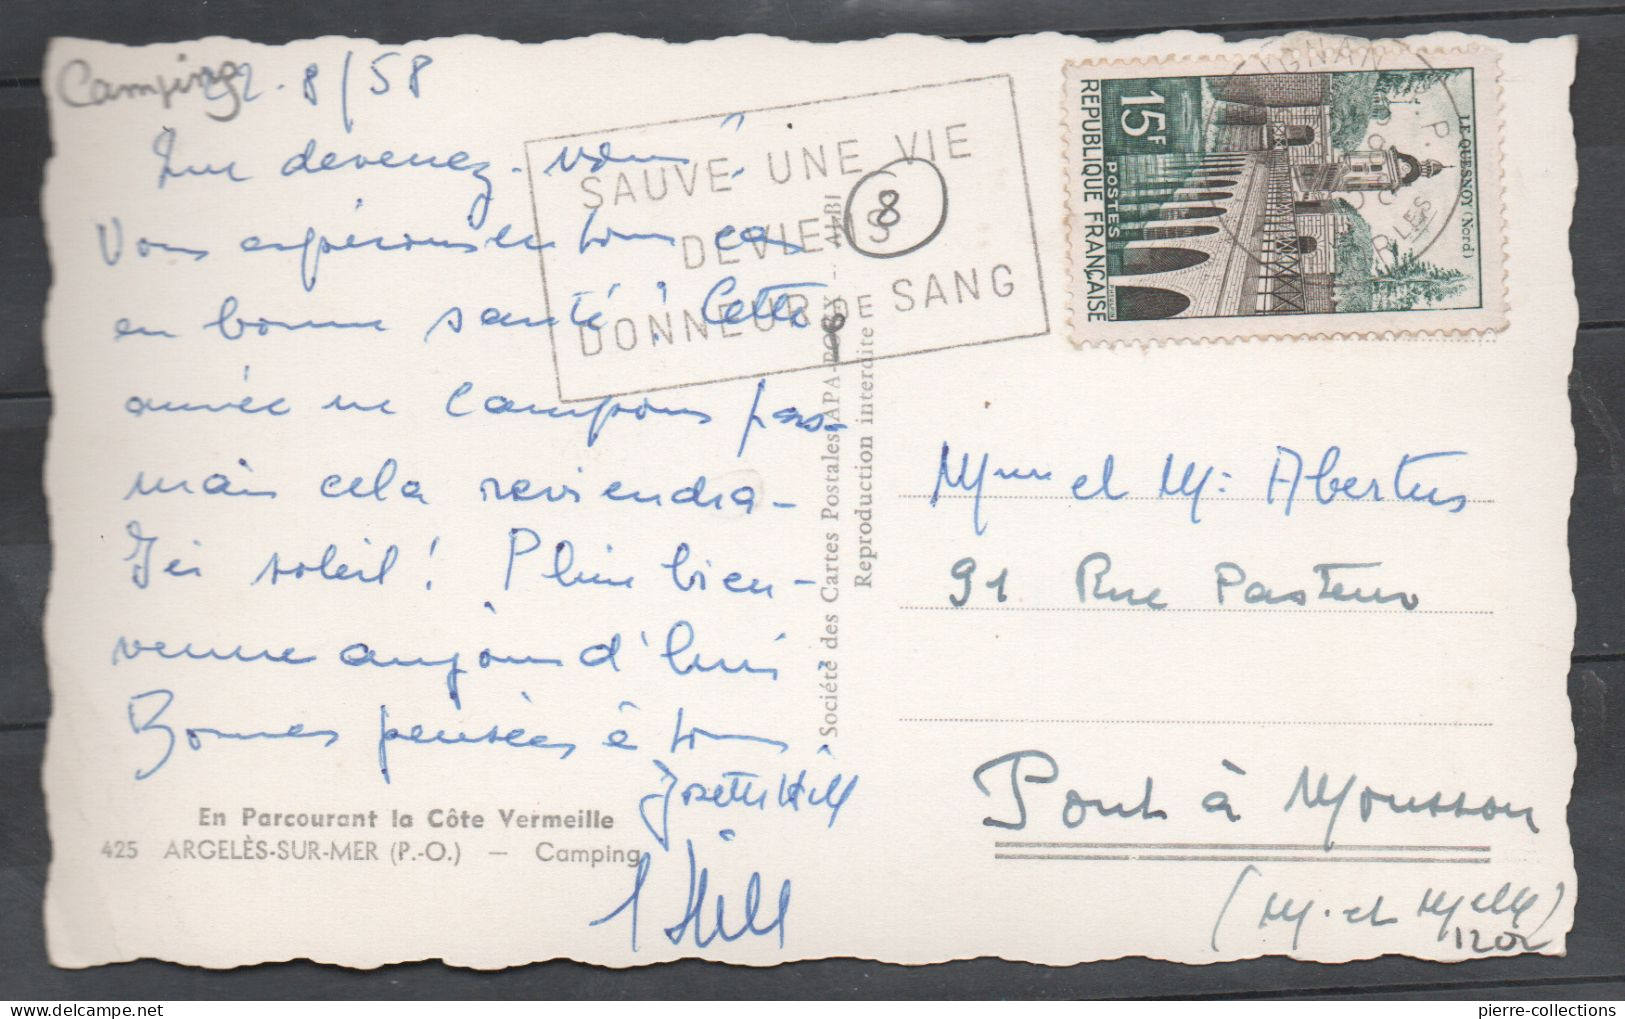 Camping
22.8/58
Que devenez-vous ?
Vous espérons en tous cas
en bonne santé ! Cette
année ne campons pas-
mais cela reviendra-
Ici soleil ! Pluie bien-
venue aujourd'hui
Bonnes pensées à tous
Josette Hill
Hill
En Parcourant la Côte Vermeille
425 ARGELÈS-SUR-MER (P.-O.) — Camping
SAUVE UNE VIE
DEVIENS
DONNEUR DE SANG
8
Société des Cartes Postales APA-POUX - ALBI
Reproduction interdite
15F
POSTES
REPUBLIQUE FRANÇAISE
LE QUESNOY (Nord)
IGNAN
Mme et Mr Abertus
91 Rue Pasteur
Pont à Mousson
(M. et Melle)
1202
pierre-collections